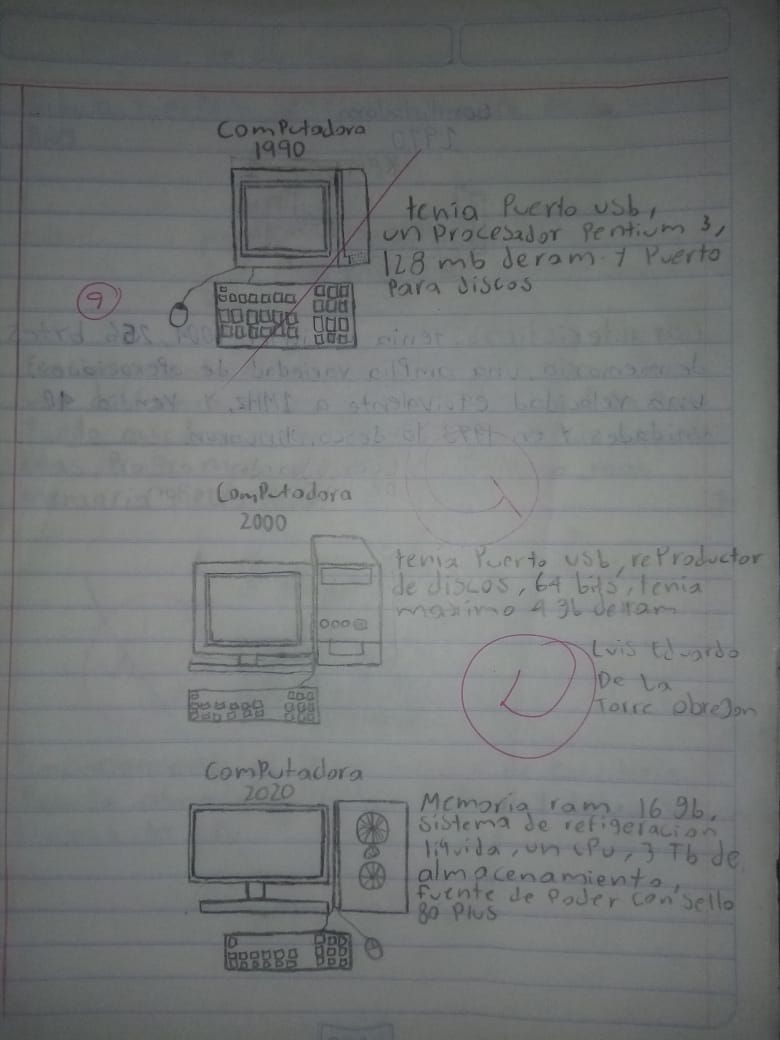 Computadora
1990
tenia Puerto usb,
un Procesador Pentium 3,
128 mb de ram y Puerto
Para discos
9
Computadora
2000
tenia Puerto usb, reProductor
de discos, 64 bits, tenia
maximo 4 gb de ram
Luis Eduardo
De La
Torre Obregon
Computadora
2020
Memoria ram 16 gb,
sistema de refigeracion
liquida, un CPU, 3 Tb de
almacenamiento,
fuente de Poder con sello
80 Plus